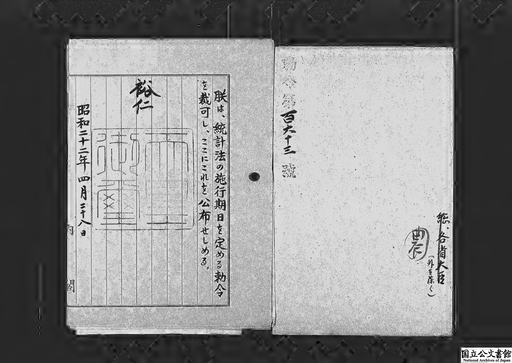 勅令第百六十三號
総、各省大臣
(外を除く)
朕は、統計法の施行期日を定める勅令
を裁可し、ここにこれを公布せしめる。
裕仁
御璽
昭和二十二年四月二十八日
内閣
国立公文書館
National Archives of Japan